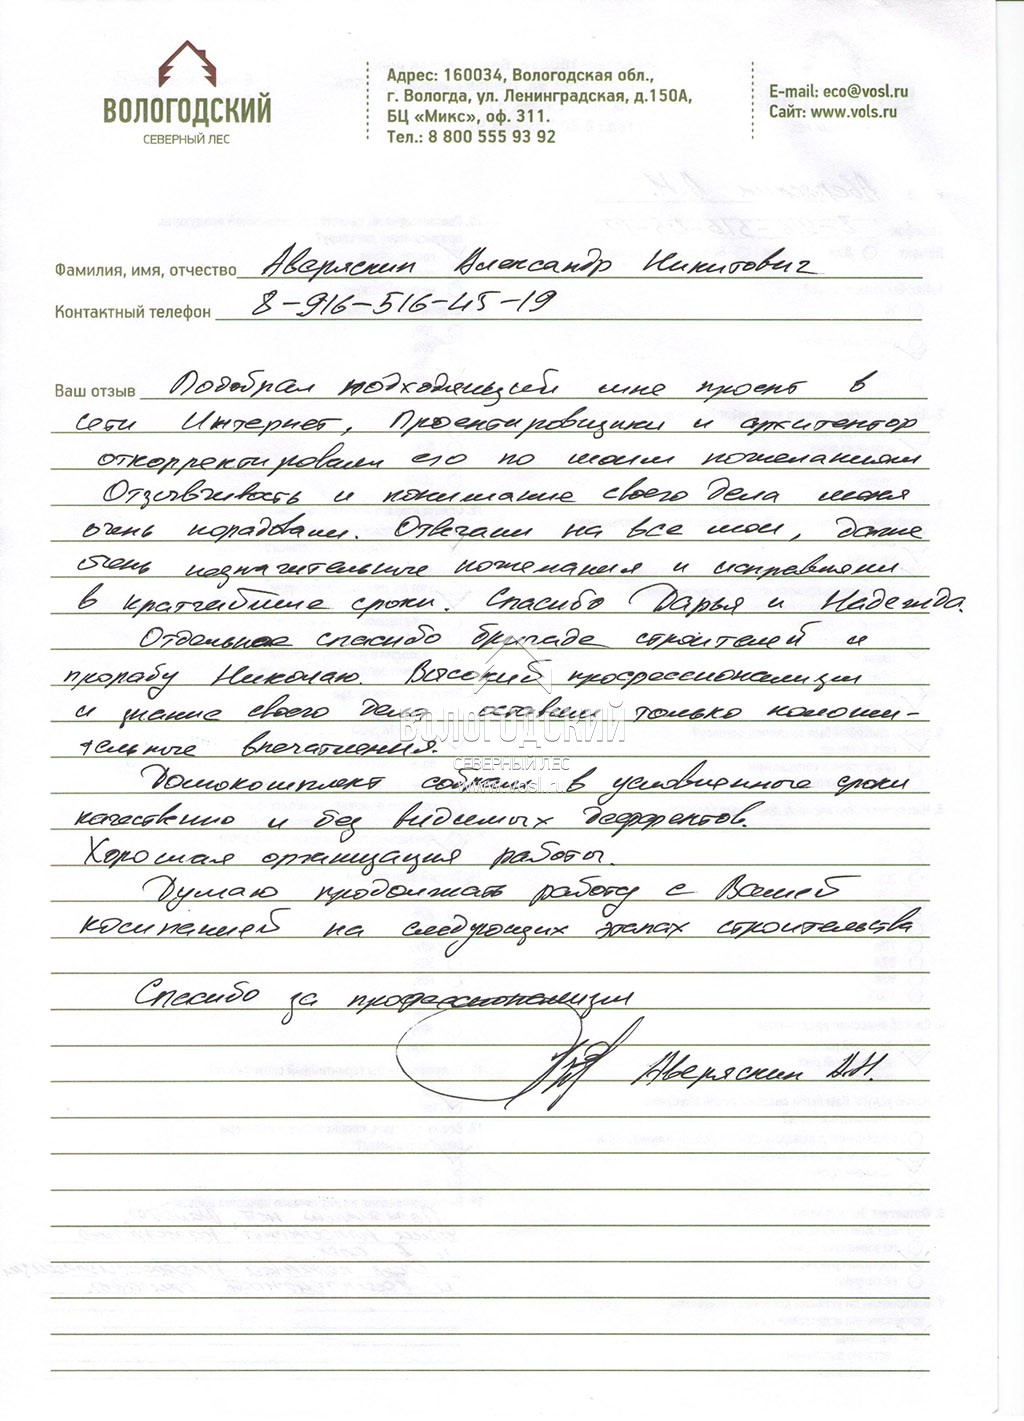 ВОЛОГОДСКИЙ
СЕВЕРНЫЙ ЛЕС
Адрес: 160034, Вологодская обл.,
г. Вологда, ул. Ленинградская, д.150А,
БЦ «Микс», оф. 311.
Тел.: 8 800 555 93 92
E-mail: eco@vosl.ru
Сайт: www.vols.ru
Фамилия, имя, отчество Аверяскин Александр Никитович
Контактный телефон 8-916-516-45-19
Ваш отзыв Подобрал подходящий мне проект в
сети Интернет, Проектировщики и архитектор
откорректировали его по моим пожеланиям
Отзывчивость и понимание своего дела меня
очень порадовали. Отвечали на все мои, даже
очень незначительные пожелания и исправляли
в кратчайшие сроки. Спасибо Дарья и Надежда.
Отдельное спасибо бригаде строителей и
прорабу Николаю. Высокий профессионализм
и знание своего дела оставили только положи-
тельные впечатления.
Домокомплект собрали в условленные сроки
качественно и без видимых деффектов.
Хорошая организация работы.
Думаю продолжать работу с Вашей
компанией на следующих этапах строительства
Спасибо за профессионализм
Аверяскин А.Н.
ВОЛОГОДСКИЙ
СЕВЕРНЫЙ ЛЕС
www.vosl.ru